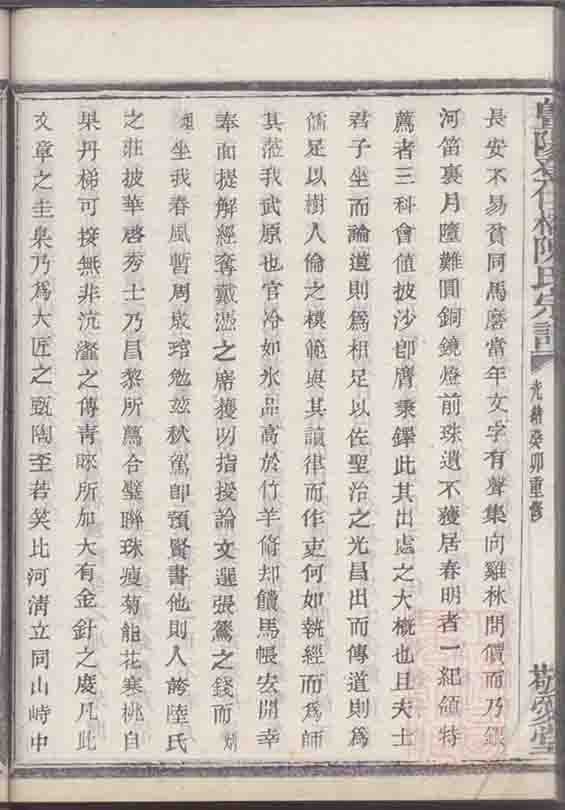 長安不易貧同馬磨當年文字有聲集向雞林問價而乃銀
河笛裏月墮難圓銅鏡燈前珠遺不獲居春明者一紀領特
薦者三科會値披沙卽膺秉鐸此其出處之大槪也且夫士
君子坐而論道則爲相足以佐聖治之光昌出而傳道則爲
儒足以樹人倫之模範與其讀律而作吏何如執經而爲師
其涖我武原也官冷如氷品高於竹羊脩却饋馬帳宏開幸
奉面提解經奪戴憑之席獲叨指授論文選張鷟之錢而
坐我春風暫周歲琯勉玆秋駕卽預賢書他則人誇陸氏
之莊披華啓秀士乃昌黎所薦合璧聯珠瘦菊能花寒桃自
果丹梯可接無非沆瀣之傳靑睞所加大有金針之度凡此
文章之圭臬乃爲大匠之甄陶至若笑比河淸立同山峙中
陳氏宗譜
光緖癸卯重修